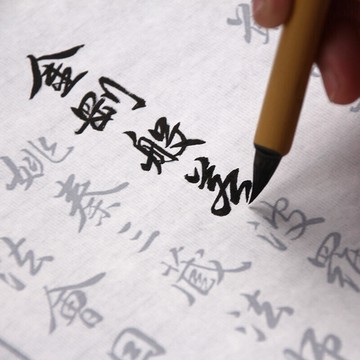 金剛般若波羅
姚秦三藏法師
法會因